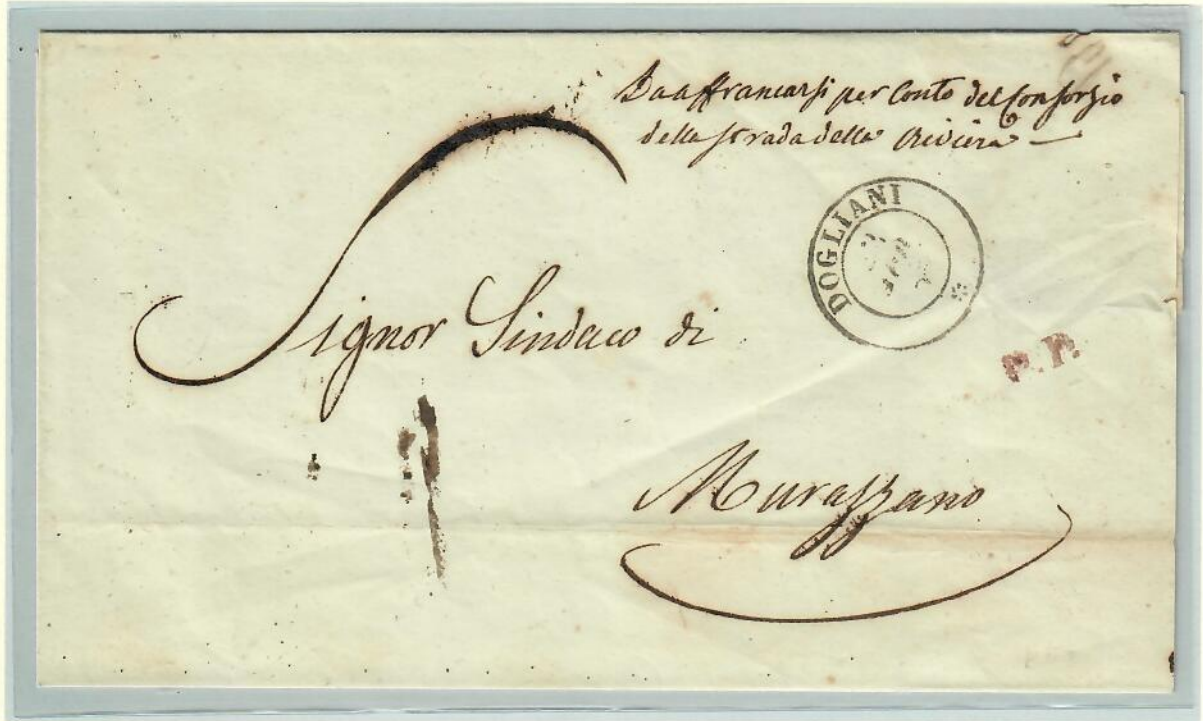 Da affrancarsi per Conto del Consorzio
della strada della Riviera
DOGLIANI
P.P.
Signor Sindaco di
Murazzano